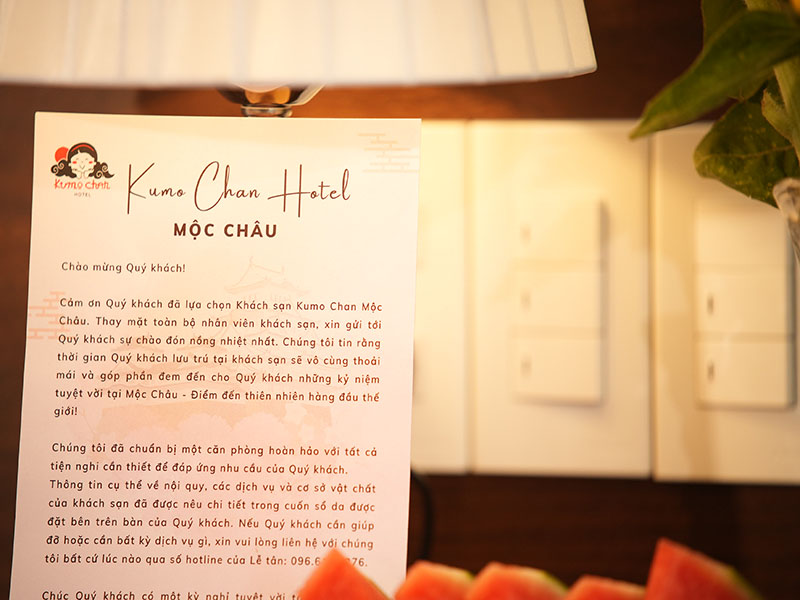 Kumo chan
HOTEL
Kumo Chan Hotel
MỘC CHÂU
Chào mừng Quý khách!
Cảm ơn Quý khách đã lựa chọn Khách sạn Kumo Chan Mộc
Châu. Thay mặt toàn bộ nhân viên khách sạn, xin gửi tới
Quý khách sự chào đón nồng nhiệt nhất. Chúng tôi tin rằng
thời gian Quý khách lưu trú tại khách sạn sẽ vô cùng thoải
mái và góp phần đem đến cho Quý khách những kỷ niệm
tuyệt vời tại Mộc Châu - Điểm đến thiên nhiên hàng đầu thế
giới!
Chúng tôi đã chuẩn bị một căn phòng hoàn hảo với tất cả
tiện nghi cần thiết để đáp ứng nhu cầu của Quý khách.
Thông tin cụ thể về nội quy, các dịch vụ và cơ sở vật chất
của khách sạn đã được nêu chi tiết trong cuốn sổ da được
đặt bên trên bàn của Quý khách. Nếu Quý khách cần giúp
đỡ hoặc cần bất kỳ dịch vụ gì, xin vui lòng liên hệ với chúng
tôi bất cứ lúc nào qua số hotline của Lễ tân:
Chúc Quý khách có một kỳ nghỉ tuyệt vời